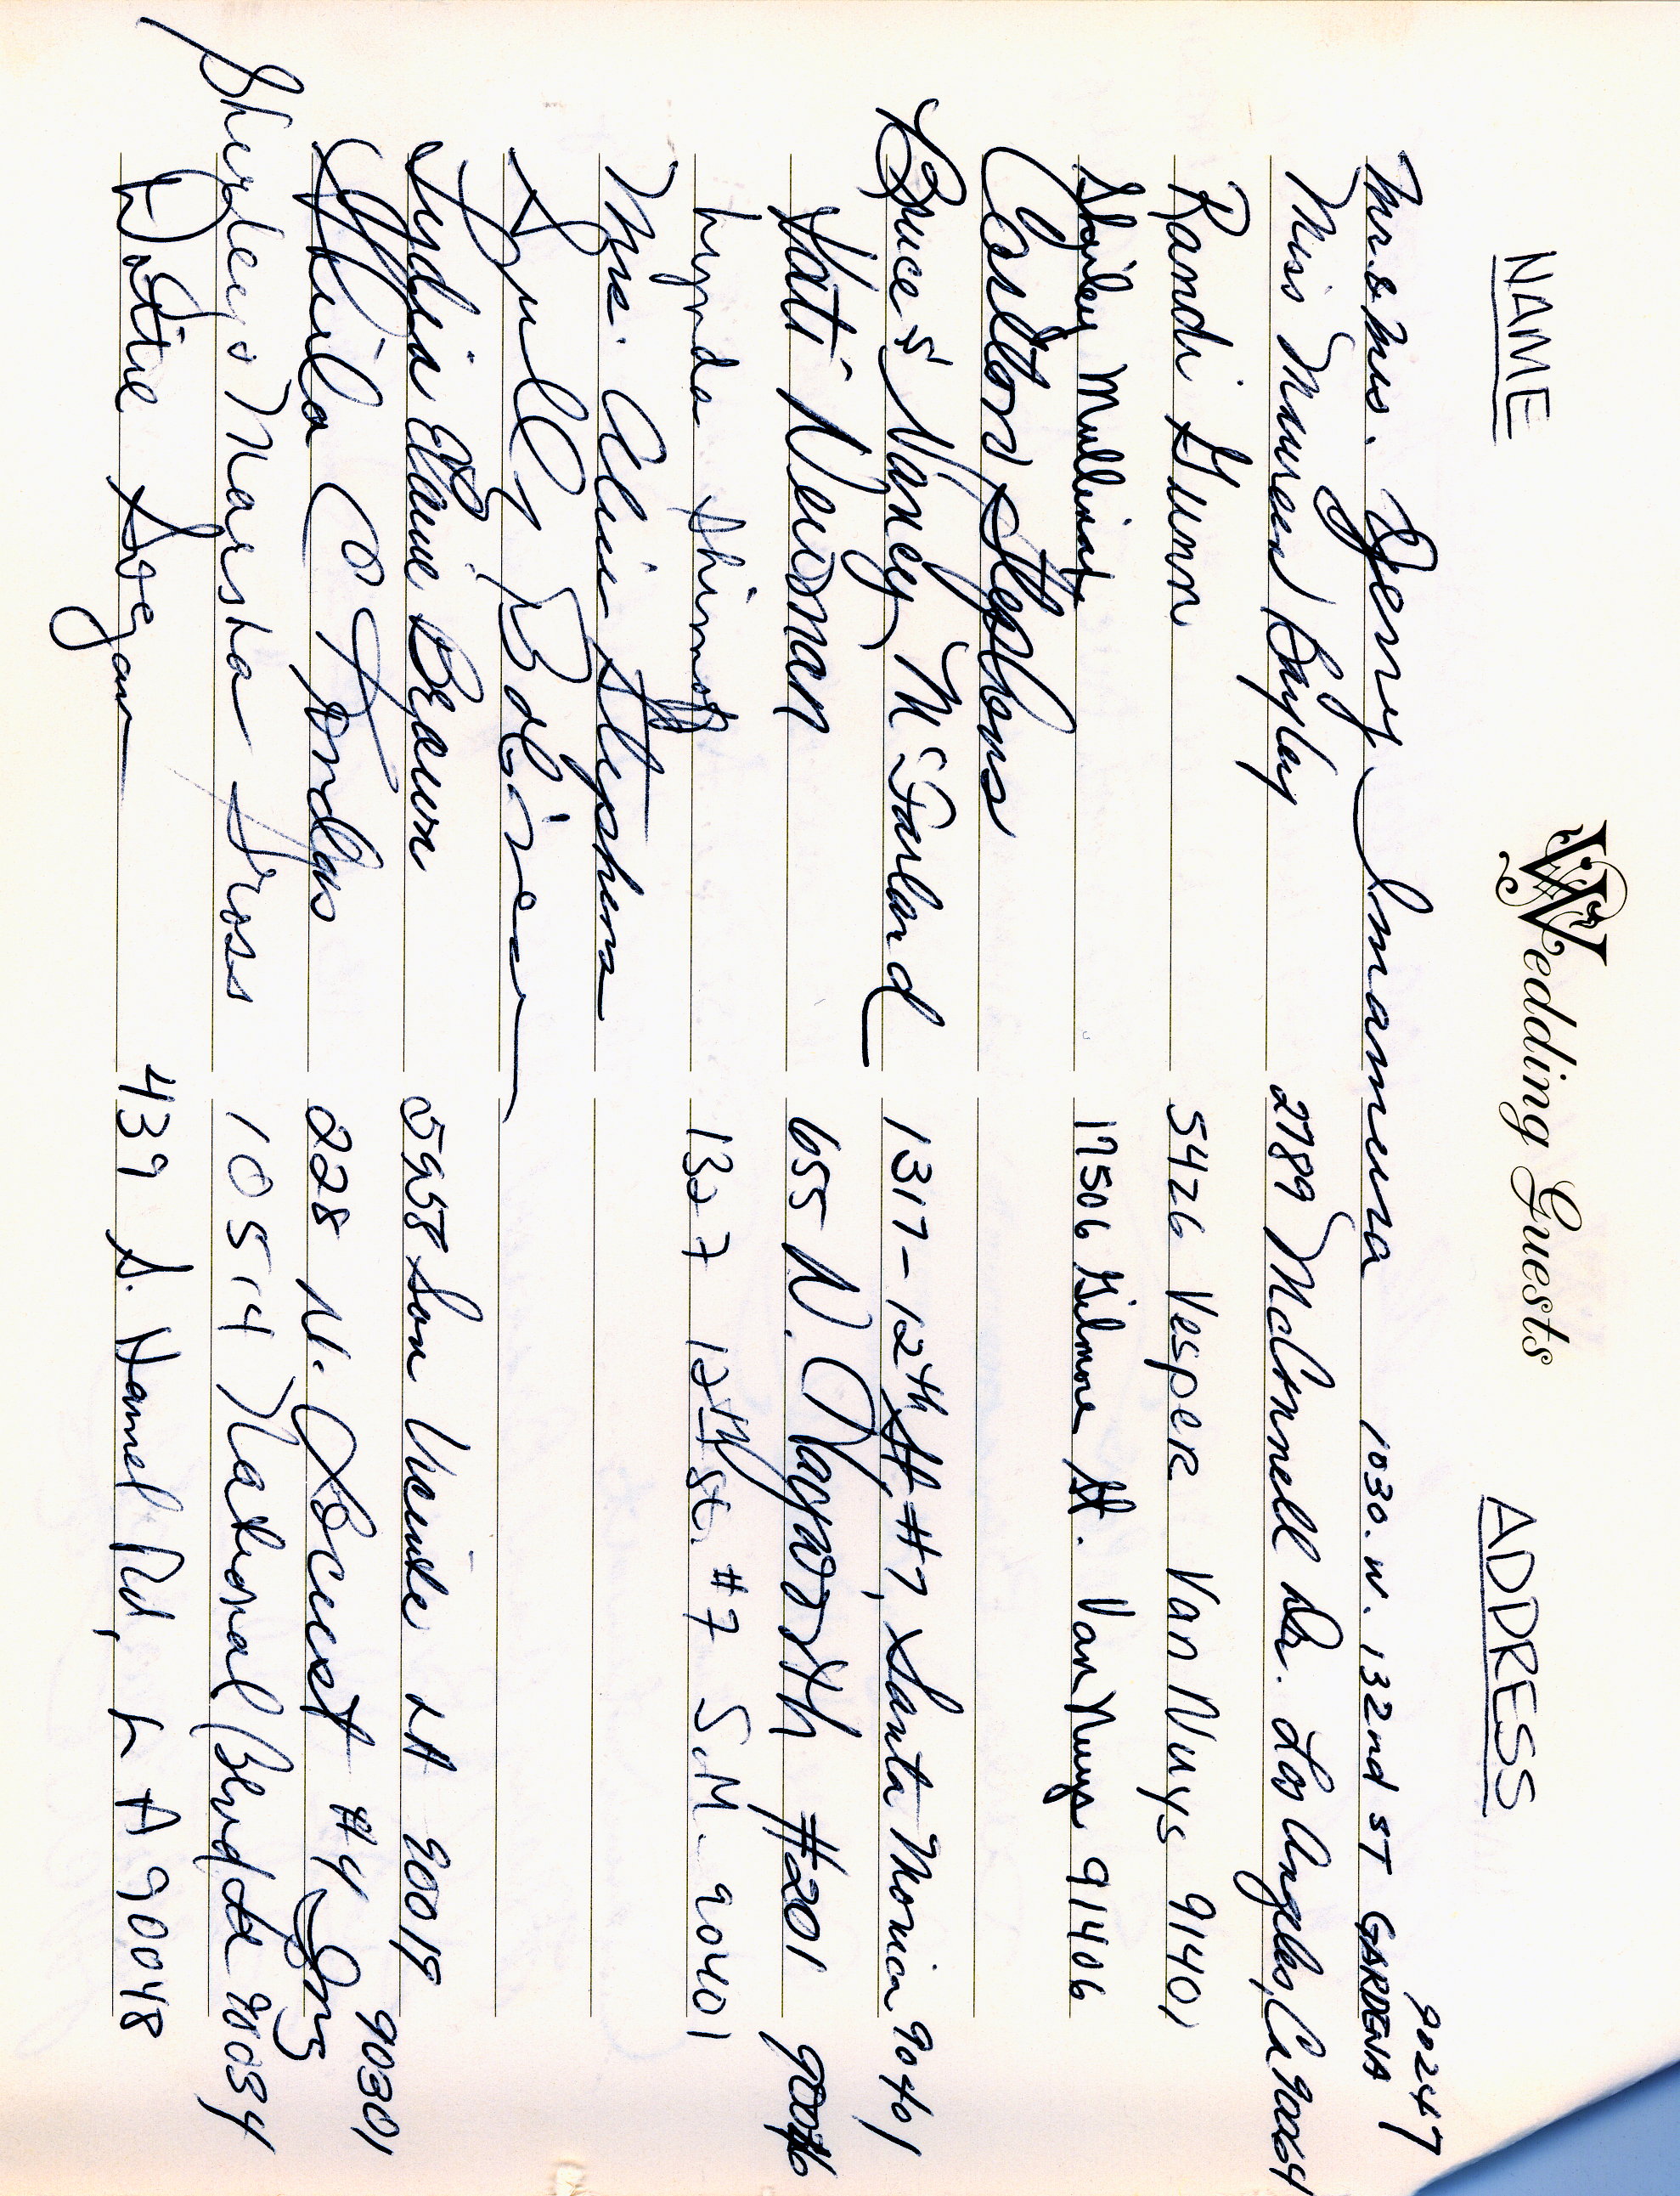 Wedding Guests
NAME ADDRESS
90247
Mr. & Mrs. Jerry Imamura 1030. W. 132nd ST GARDENA
Miss Maureen Bayley 2789 McConnell Dr. Los Angeles, Ca 90064
Randi Gunn 5426 Vesper Van Nuys 91401
Shirley 17506 Gilmore St. Van Nuys 91406
Carlton Stephens
Bruce & Nancy McFarland 1317-12th St. #7, Santa Monica 90401
Kati Newman 655 N. Hayworth #201 90046
Lynda 1327 12th St. #7 S.M. 90401
Mrs. Alice Stephens
Lydia Elaine Brown 5958 San Vicente LA 90019
Sheila C 228 N. Locust #4 Ing 90301
Shirley & Marsha Gross 10514 National Blvd LA 90034
439 S. Hamel Rd, LA 90048